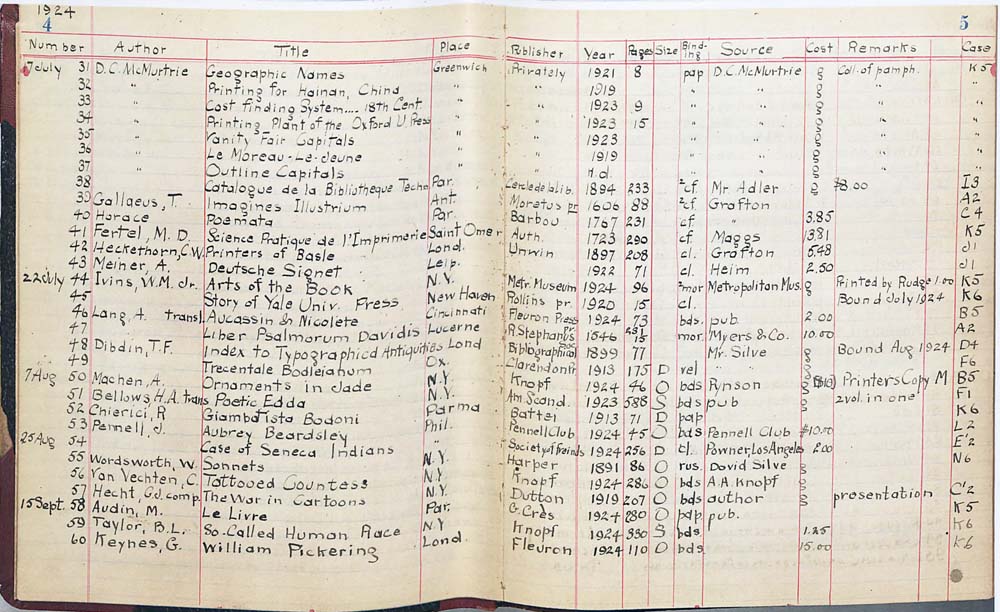 1924
4 5
Number Author Title Place Publisher Year Pages Size Binding Source Cost Remarks Case
7 July 31 D.C. McMurtrie Geographic Names Greenwich Privately 1921 8 pap D.C. McMurtrie g Coll. of pamph. K5
32 " Printing for Hainan, China " " 1919 " " " g " "
33 " Cost finding System.... 18th Cent. " " 1923 9 " " " g " "
34 " Printing Plant of the Oxford U. Press " " 1923 15 " " " g " "
35 " Vanity Fair Capitals " " 1923 " " " g " "
36 " Le Moreau-Le-Jeune " " 1919 " " " g " "
37 " Outline Capitals " " n.d. " " " g " "
38 Catalogue de la Bibliotheque Techn Par. Cercle de la Lib. 1894 233 2cf Mr Adler g $8.00 I3
39 Gallaeus, T. Imagines Illustrium Ant. Moretus pr 1606 88 2cf Grafton A2
40 Horace Poemata Par. Barbou 1767 231 cf " 3.85 C4
41 Fertel, M. D. Science Pratique de l'Imprimerie Saint Omer Auth. 1723 290 cf. Maggs 13.81 K5
42 Heckethorn, C.W. Printers of Basle Lond. Unwin 1897 208 cl. Grafton 5.48 J1
43 Meiner, A. Deutsche Signet Leip. 1922 71 cl. Heim 2.50 J1
22 July 44 Ivins, W.M. Jr. Arts of the Book N.Y. Metr. Museum 1924 96 2mor Metropolitan Mus. g Printed by Rudge 1.00 K5
45 Story of Yale Univ. Press New Haven Rollins pr. 1920 15 cl. Bound July 1924 K6
46 Lang, A. transl. Aucassin & Nicolete Cincinnati Fleuron Press 1924 73 bds. pub. 2.00 B5
47 Liber Psalmorum Davidis Lucerne R. Stephanus pr. 1546 231 15 mor. Myers & Co. 10.00 A2
48 Dibdin, T.F. Index to Typographical Antiquities Lond Bibliographical Soc 1899 77 Mr. Silve g Bound Aug 1924 D4
49 Trecentale Bodleianum Ox. Clarendon pr 1913 175 D vel " g F6
7 Aug 50 Machen, A. Ornaments in Jade N.Y. Knopf 1924 46 O bds Rynson g $10 Printers Copy M B5
51 Bellows, H.A. trans Poetic Edda N.Y. Am. Scand. 1923 588 S bds pub g 2 vol. in one F1
52 Chierici, R Giambatista Bodoni Parma Battei 1913 71 D pap K6
53 Pennell, J. Aubrey Beardsley Phil. Pennell Club 1924 45 O bds Pennell Club $10.00 L2
25 Aug 54 Case of Seneca Indians " Society of Freinds 1924 256 D cl. Powner, Los Angeles 2.00 E'2
55 Wordsworth, W. Sonnets N.Y. Harper 1891 86 O rus. David Silve g N6
56 Van Vechten, C. Tattooed Countess N.Y. Knopf 1924 286 O bds A.A. Knopf g
57 Hecht, G.J. comp. The War in Cartoons N.Y. Dutton 1919 207 O bds author g presentation C'2
15 Sept. 58 Audin, M. Le Livre Par. G. Crès 1924 280 O pap pub. K5
59 Taylor, B.L. So-Called Human Race N.Y Knopf 1924 330 S bds 1.25 K6
60 Keynes, G. William Pickering Lond. Fleuron 1924 110 O bds 15.00 K6